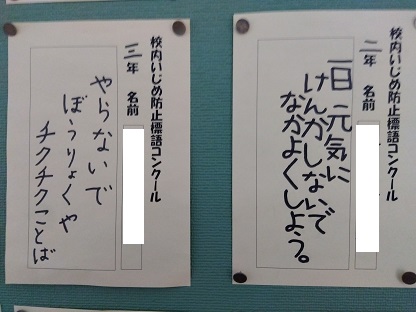 校内いじめ防止標語コンクール
二年 名前
一日元気に
けんかしないで
なかよくしよう。
校内いじめ防止標語コンクール
三年 名前
やらないで
ぼうりょくや
チクチクことば